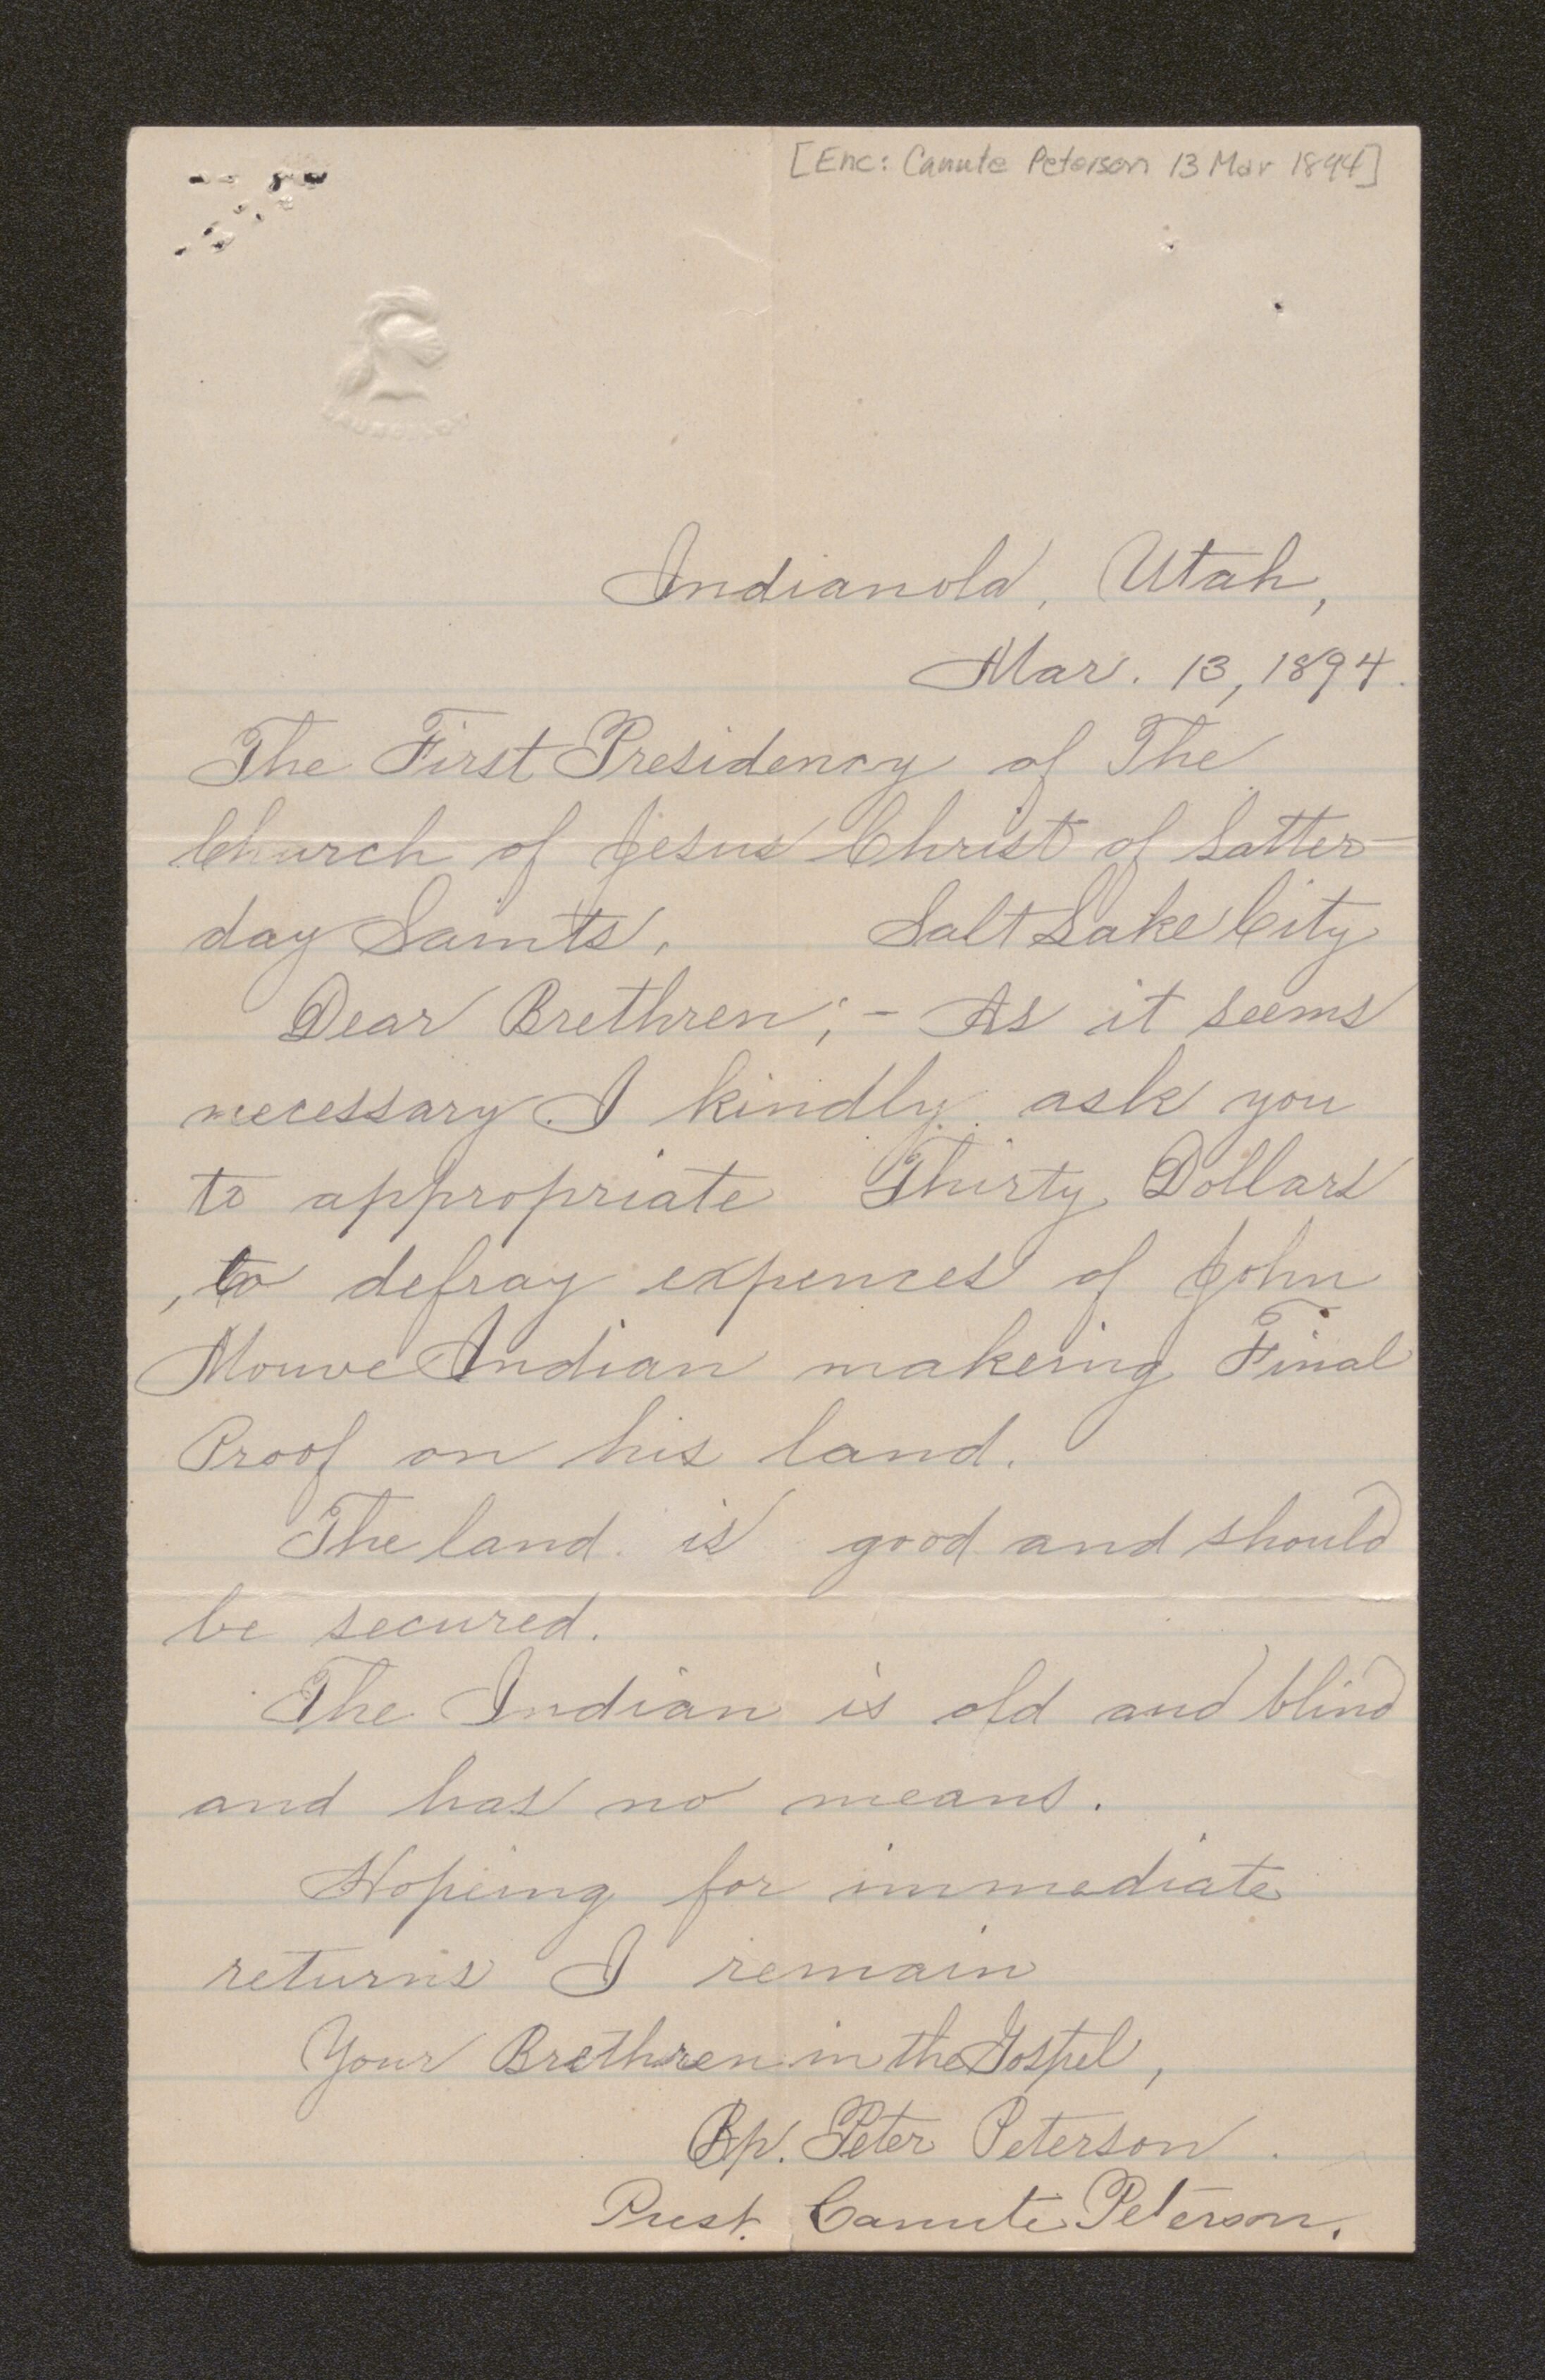 [Enc: Canute Peterson 13 Mar 1894]
Indianola, Utah,
Mar. 13, 1894.
The First Presidency of The
Church of Jesus Christ of Latter-
day Saints, Salt Lake City
Dear Brethren;- As it seems
necessary I kindly ask you
to appropriate Thirty Dollars
, to defray expences of John
Mouve Indian makeing Final
Proof on his land.
The land is good and should
be secured.
The Indian is old and blind
and has no means.
Hopeing for immediate
returns I remain
Your Brethren in the Gospel,
Bp. Peter Peterson.
Prest. Canute Peterson.